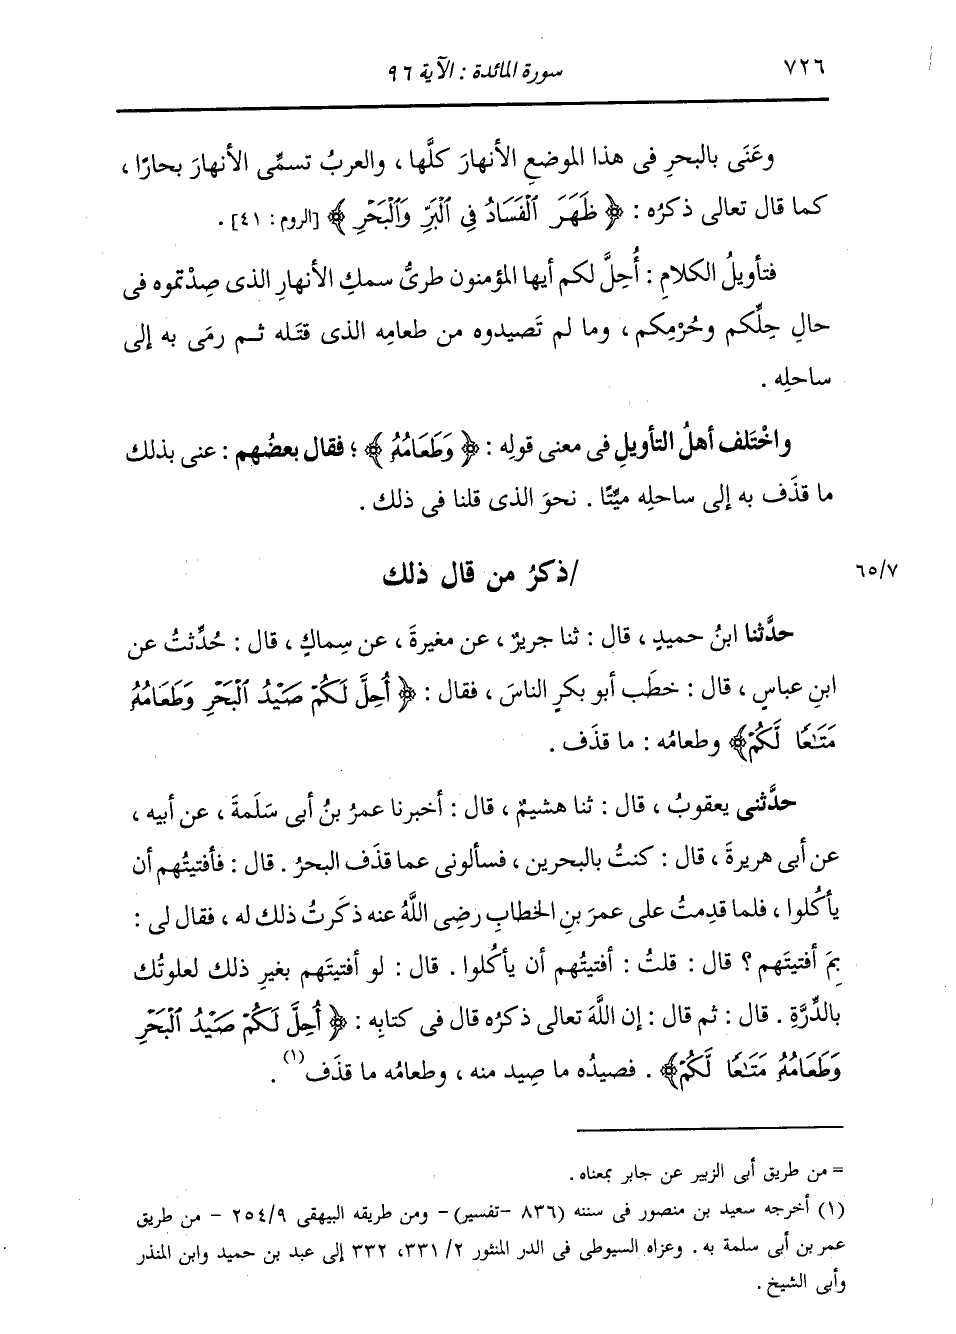 ٧٢٦
سورة المائدة : الآية ٩٦
وعَنَى بالبحرِ فى هذا الموضعِ الأنهارَ كلَّها ، والعربُ تسمِّى الأنهارَ بحارًا ،
كما قال تعالى ذكرُه : ﴿ ظَهَرَ ٱلْفَسَادُ فِى ٱلْبَرِّ وَٱلْبَحْرِ ﴾ [الروم : ٤١] .
فتأويلُ الكلامِ : أُحِلَّ لكم أيها المؤمنون طرىُّ سمكِ الأنهارِ الذى صِدْتموه فى
حالِ حِلِّكم وحُرْمِكم ، وما لم تَصيدوه من طعامِه الذى قتَله ثم رمَى به إلى
ساحلِه .
واخْتَلف أهلُ التأويلِ فى معنى قولِه : ﴿ وَطَعَامُهُ ﴾ ؛ فقال بعضُهم : عنى بذلك
ما قذَف به إلى ساحلِه ميِّتًا . نحوَ الذى قلنا فى ذلك .
/ذكرُ من قال ذلك
٦٥/٧
حدَّثنا ابنُ حميدٍ ، قال : ثنا جريرٌ ، عن مغيرةَ ، عن سِماكٍ ، قال : حُدِّثتُ عن
ابنِ عباسٍ ، قال : خطَب أبو بكرٍ الناسَ ، فقال : ﴿ أُحِلَّ لَكُمْ صَيْدُ ٱلْبَحْرِ وَطَعَامُهُ
مَتَـٰعًا لَّكُمْ﴾ وطعامُه : ما قذَف .
حدَّثنى يعقوبُ ، قال : ثنا هشيمٌ ، قال : أخبرنا عمرُ بنُ أبى سَلَمةَ ، عن أبيه ،
عن أبى هريرةَ ، قال : كنتُ بالبحرين ، فسألونى عما قذَف البحرُ . قال : فأفتيتُهم أن
يأكُلوا ، فلما قدِمتُ على عمرَ بنِ الخطابِ رضِى اللَّهُ عنه ذكَرتُ ذلك له ، فقال لى :
بِمَ أفتيتَهم ؟ قال : قلتُ : أفتيتُهم أن يأكُلوا . قال : لو أفتيتَهم بغيرِ ذلك لعلوتُك
بالدِّرَّةِ . قال : ثم قال : إن اللَّهَ تعالى ذكرُه قال فى كتابِه : ﴿ أُحِلَّ لَكُمْ صَيْدُ ٱلْبَحْرِ
وَطَعَامُهُ مَتَـٰعًا لَّكُمْ﴾ . فصيدُه ما صِيد منه ، وطعامُه ما قذَف(١) .
= من طريق أبى الزبير عن جابر بمعناه .
(١) أخرجه سعيد بن منصور فى سننه (٨٣٦ -تفسير)- ومن طريقه البيهقى ٢٥٤/٩ - من طريق
عمر بن أبى سلمة به . وعزاه السيوطى فى الدر المنثور ٢/ ٣٣١، ٣٣٢ إلى عبد بن حميد وابن المنذر
وأبى الشيخ .